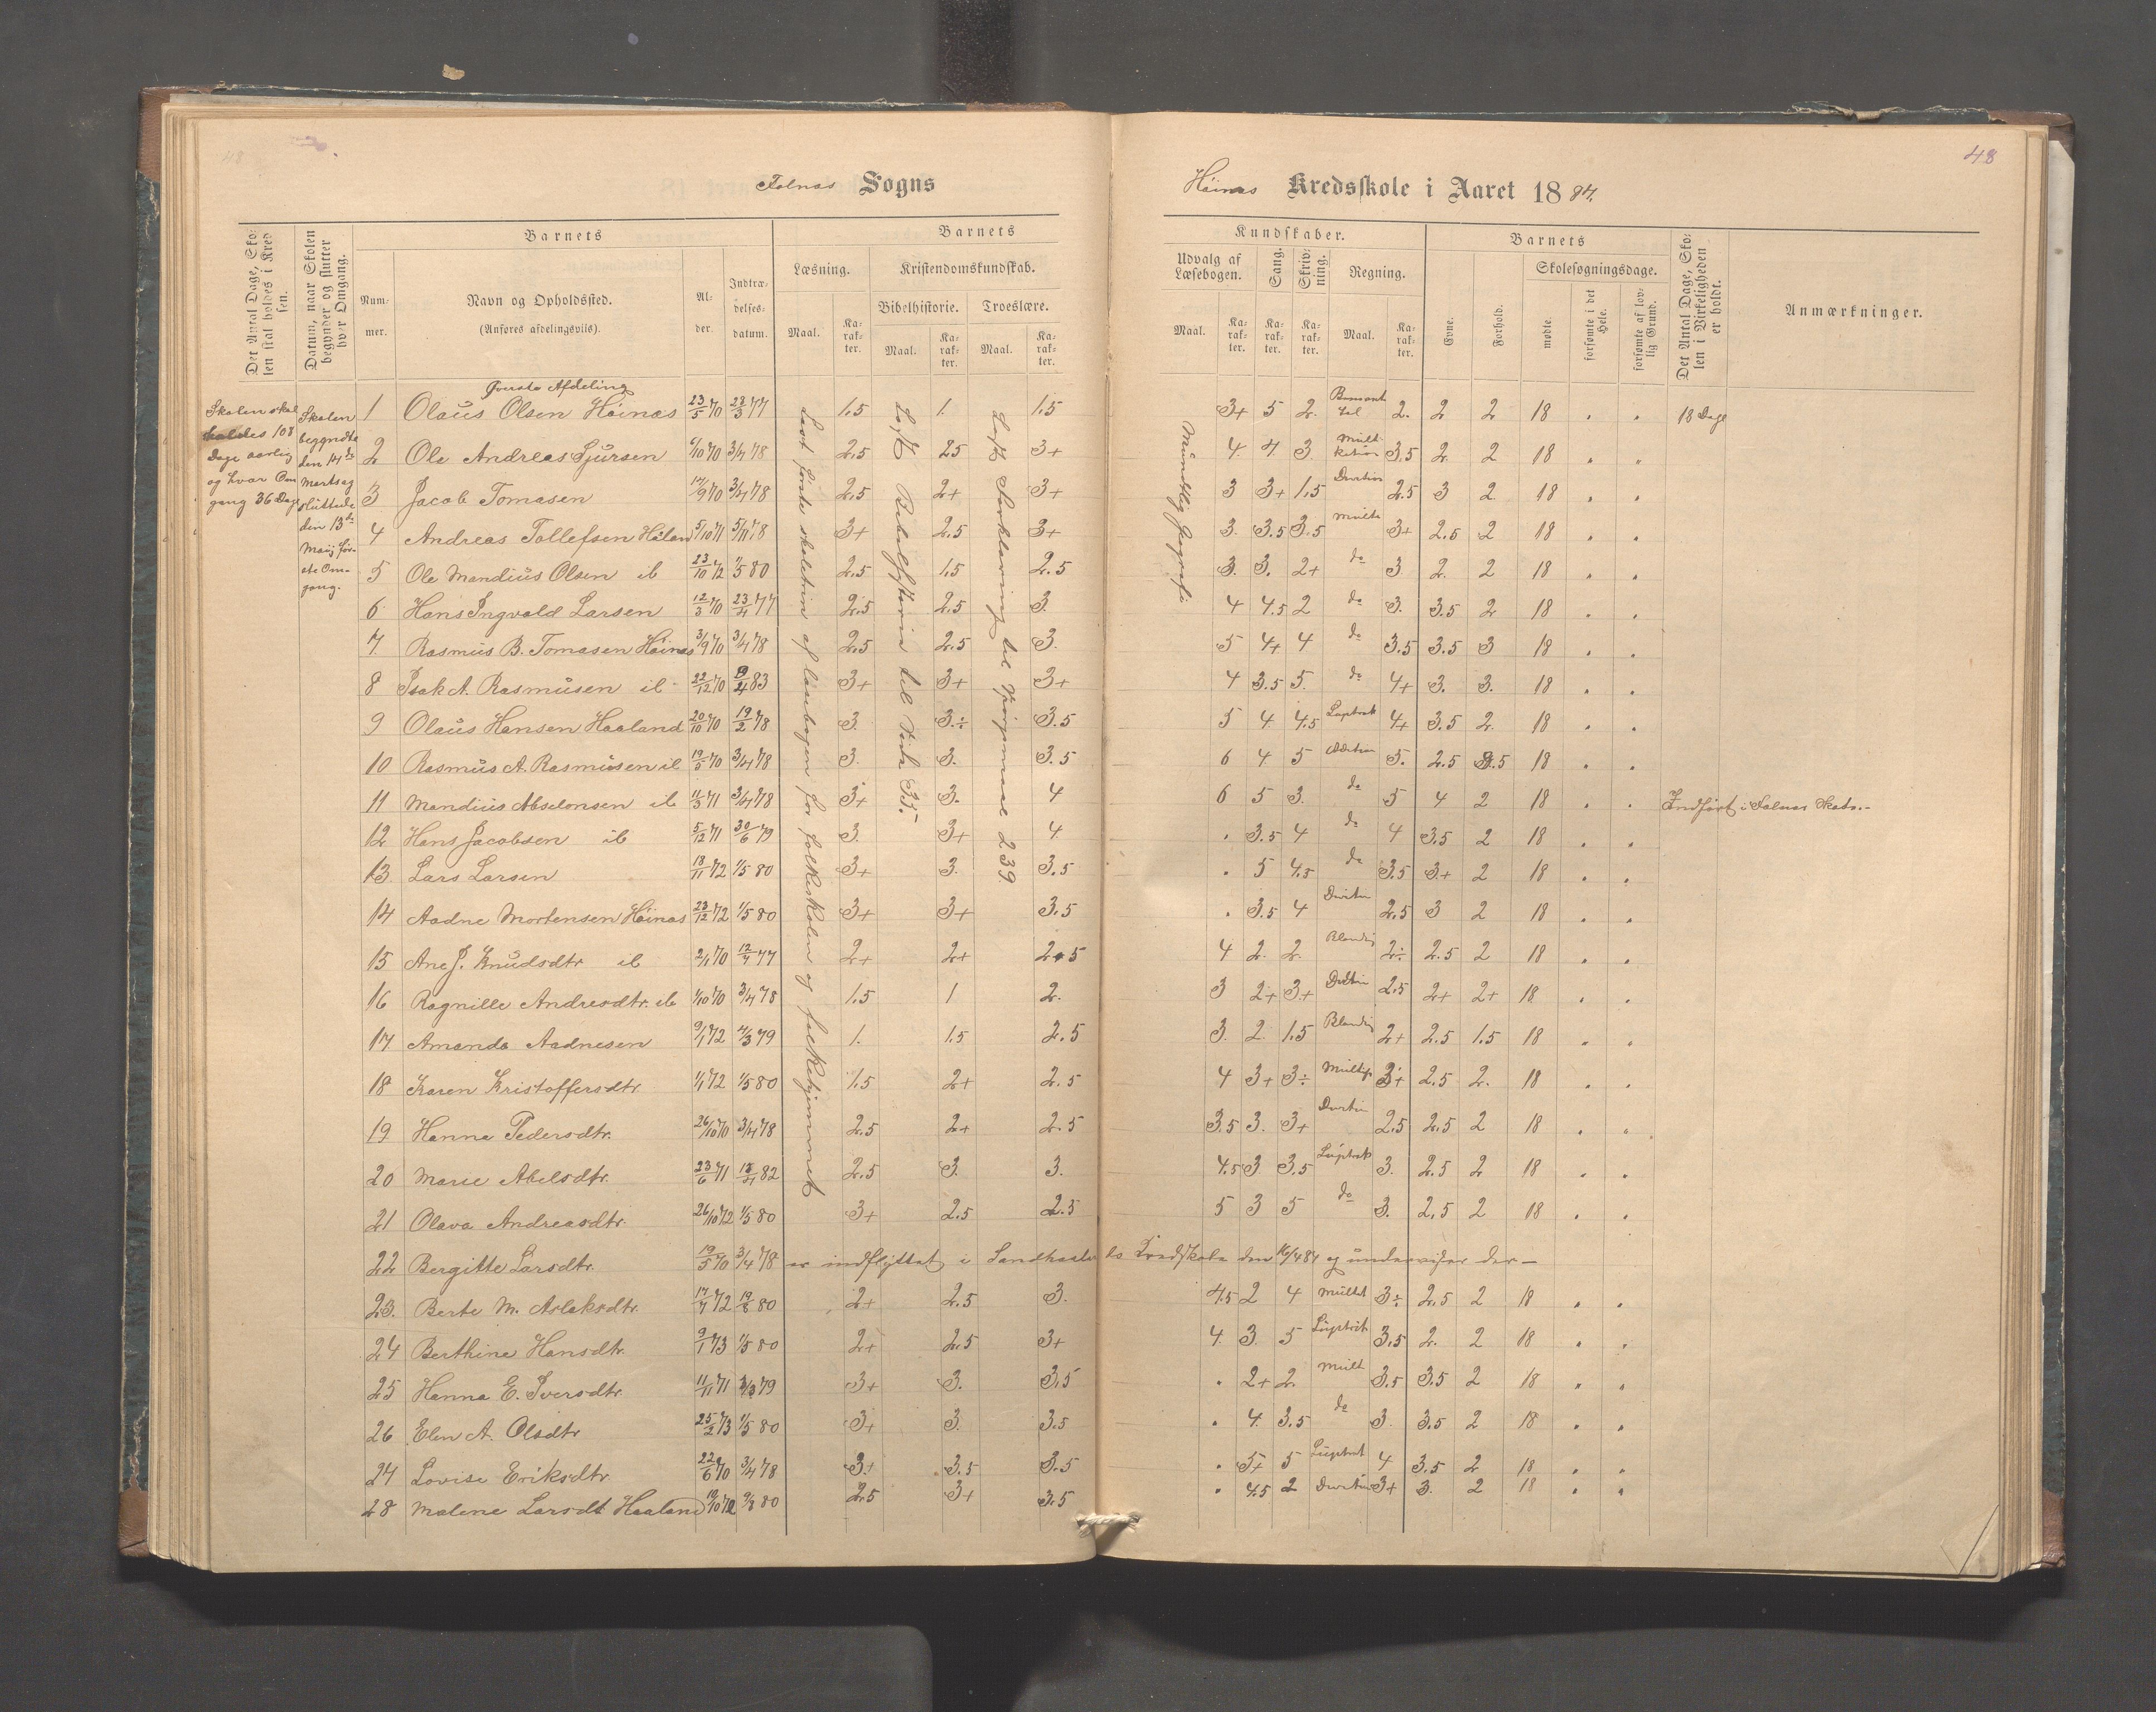 48
Falnes Sogns
Høines Kredsskole i Aaret 1884.
Det Antal Dage, Skolen skal holdes i Kredsen.
Datum, naar Skolen begynder og slutter hver Omgang.
Barnets
Nummer.
Navn og Opholdssted.
(Anføres afdelingsvis).
Alder.
Indtrædelsesdatum.
Barnets
Læsning.
Maal.
Karakter.
Kristendomskundskab.
Bibelhistorie.
Maal.
Karakter.
Troeslære.
Maal.
Karakter.
Kundskaber.
Udvalg af Læsebogen.
Maal.
Karakter.
Sang.
Karakter.
Skrivning.
Karakter.
Regning.
Maal.
Karakter.
Barnets
Evne.
Forhold.
Skolesøgningsdage.
mødte.
forsømte i det Hele.
forsømte af lovlig Grund.
Det Antal Dage, Skolen i Virkeligheden er holdt.
Anmærkninger.
Skolen skal holdes 108 Dage aarlig og hver Omgang 36 Dage
Skolen begyndte den 14de Marts og sluttede den 13de Maij første Omgang.
Læst første skoletrin af læsebogen for folkeskolen og folkehjemmet
Læst Bibelhistorie til Side 35.
Læst Forklaring til Spørgsmaal 239
Mundtlig Geografi
Øverste Afdeling
1 Olaus Olsen Høines 23/5 70 23/3 77 1,5 1. 1,5 3+ 5 2. 2. 2 2 18 " " 18 Dage
2 Ole Andreas Sjursen 6/10 70 3/4 78 2,5 25 3+ 4. 4 3. 3,5 2. 2 18 " "
3 Jacob Tomasen 17/9 70 3/4 78 2,5 2+ 3+ 3 3+ 1,5 2.5 3 2 18 " "
4 Andreas Tollefsen 5/10 71 5/11 78 3+ 2,5 3+ 3. 3.5 3.5 3+ 2,5 2 18 " "
5 Ole Mandius Olsen ib 23/10 72 1/5 80 2,5 1,5 2.5 3. 3. 2+ do 3 2. 2 18 " "
6 Hans Ingvald Larsen 12/3 70 23/4 77 2,5 2,5 3. 4 4.5 2 do 3. 3.5 2 18 " "
7 Rasmus B. Tomasen Høines 3/9 70 3/4 78 2,5 2,5 3. 5 4+ 4 do 3.5 3.5 3 18 " "
8 Isak A. Rasmusen ib 22/12 70 83 3+ 3+ 3+ 4 3.5 5. do 4+ 3. 3. 18 " "
9 Olaus Hansen Haaland 20/10 70 19/2 78 3. 3.÷ 3.5 5 4 4.5 4+ 3.5 2. 18 " "
10 Rasmus A. Rasmusen ib 19/5 70 3/4 78 3. 3. 3.5 6 4 5 Addition 5. 2.5 18 " "
11 Mandius Abselonsen ib 11/3 71 3/4 78 3+ 3. 4 6 5 3. do 5 4 2 18 " " Indført i Falnes Skole.-
12 Hans Jacobsen ib 5/12 71 30/6 79 3. 3+ 4. " 3.5 4 do 4 3,5 2 18 " "
13 Lars Larsen 18/11 72 1/5 80 3+ 3. 3.5 " 5 4.5 do 3.5 3+ 2 18 " "
14 Aadne Mortensen Høines 23/12 72 1/5 80 3+ 3+ 3,5 " 3.5 4 2,5 3 2 18 " "
15 Ane J. Knudsdtr ib 2/1 70 12/4 77 2+ 2+ 2.5 4 2. 2. Blanding 2÷ 2.5 2 18 " "
16 Ragnille Andresdtr. ib 1/10 70 3/4 78 1,5 1 2. 3 2+ 3+ 2,5 2+ 2+ 18 " "
17 Amanda Aadnesen 9/1 72 4/3 79 1. 1,5 2.5 3. 2. 1,5 Blanding 2+ 2,5 1.5 18 " "
18 Karen Kristoffersdtr. 1/1 72 1/5 80 1,5 2+ 2.5 4 3+ 3÷ 3+ 2,5 2. 18 " "
19 Hanna Pedersdtr. 26/10 70 3/4 78 2.5 2+ 2.5 3.5 3. 3+ 2,5 2,5 2 18 " "
20 Marie Abelsdtr. 23/6 71 82 2,5 3. 3. 4.5 3 3.5 3. 2,5 2 18 " "
21 Olava Andreasdtr. 26/10 72 1/5 80 3+ 2,5 2.5 5 3 5 do 3. 2,5 2 18 " "
22 Bergitte Larsdtr. 19/5 70 3/4 78 er indflyttet i Kredskole den 16/4 84 og undervises der —
23. Berte M. Aslaksdtr. 17/7 72 80 2+ 2,5 3. 4.5 2 4 3÷ 2,5 2 18 " "
24 Berthine Hansdtr. 9/1 73 1/5 80 2+ 2,5 3+ 4. 3. 5 3,5 2. 2 18 " "
25 Hanna E. Iversdtr. 11/11 71 79 3+ 3. 3,5 " 2+ 2. Mult 3,5 3.5 2 18 " "
26 Elen A. Olsdtr 25/2 73 1/5 80 3+ 3. 3.5 " 4. 3.5 do 3. 3.5 2 18 " "
27 Lovise Eriksdtr. 22/6 70 3/4 78 3+ 3.5 3.5 " 5+ 5 4 3.5 2 18 " "
28 Malene Larsdt Haaland 80 2,5 3+ 3.5 " 4.5 2 3+ 3. 2 18 " "